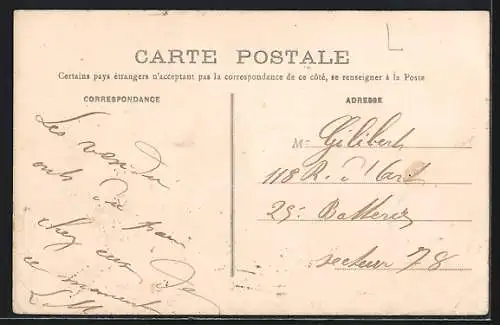 CARTE POSTALE
Certains pays étrangers n'acceptent pas la correspondance de ce côté, se renseigner à la Poste
CORRESPONDANCE
ADRESSE
Les
ont du pain
chez eux
ce moment
L M
M Gilibert
118 R. d'Art
25e Batterie
secteur 78